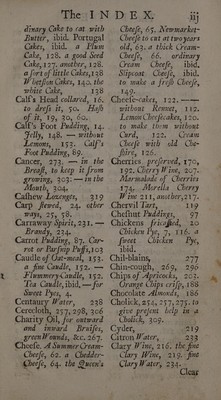 The INDEX. iij
dinary Cake to eat with
Butter, ibid. Portugal
Cakes, ibid. a Plum
Cake, 128. a good Seed
Cake, 127. another, 128.
a sort of little Cakes, 138
Whetson Cakes, 140. the
white Cake, 138
Calf's Head collared, 16.
to dress it, 50. Hash
of it, 19, 30, 60.
Calf's Foot Pudding, 14.
Jelly, 148. — without
Lemons, 153. Calf's
Foot Pudding, 89.
Cancer, 273. — in the
Breast, to keep it from
growing, 303. — in the
Mouth, 304.
Cashew Lozenges, 319
Carp stewed, 24. other
ways, 25, 58.
Carraway Spirit, 231. —
Brandy, 234.
Carrot Pudding, 87. Car-
rot or Parsnip Puffs, 103
Caudle of Oat-meal, 153.
a fine Caudle, 152. —
Flummery Caudle, 152.
Tea Caudle, ibid. — for
Sweet Pyes, 4.
Centaury Water, 238
Cerecloth, 257, 298, 306
Charity Oil, for outward
and inward Bruises,
green Wounds, &c. 267.
Cheese. A Summer Cream-
Cheese, 62. a Chedder-
Cheese, 64. the Queen's
Cheese, 65. Newmarket-
Cheese to cut at two years
old, 63. a thick Cream-
Cheese, 66. ordinary
Cream Cheese, ibid.
Slipcoat Cheese, ibid.
to make a fresh Cheese,
149.
Cheese-cakes, 122. —
without Rennet, 112.
Lemon Cheesecakes, 120.
to make them without
Curd, 122. Cream
Cheese with old Che-
shire, 126.
Cherries preserved, 170,
192. Cherry Wine, 207.
Marmalade of Cherries
174. Morella Cherry
Wine 211, another, 217.
Chervil Tart, 119
Chesnut Puddings, 97
Chickens fricaseed, 20.
Chicken Pye, 7, 116. a
sweet Chicken Pye,
ibid.
Chil-blains, 277
Chin-cough, 269, 296
Chips of Apricocks, 202.
Orange Chips crisp, 188
Chocolate Almonds, 186
Cholick, 254, 257, 275. to
give present help in a
Cholick, 309.
Cyder, 219
Citron Water, 233
Clary Wine, 216. the fine
Clary Wine, 219. fine
Clary Water, 234.
Clear